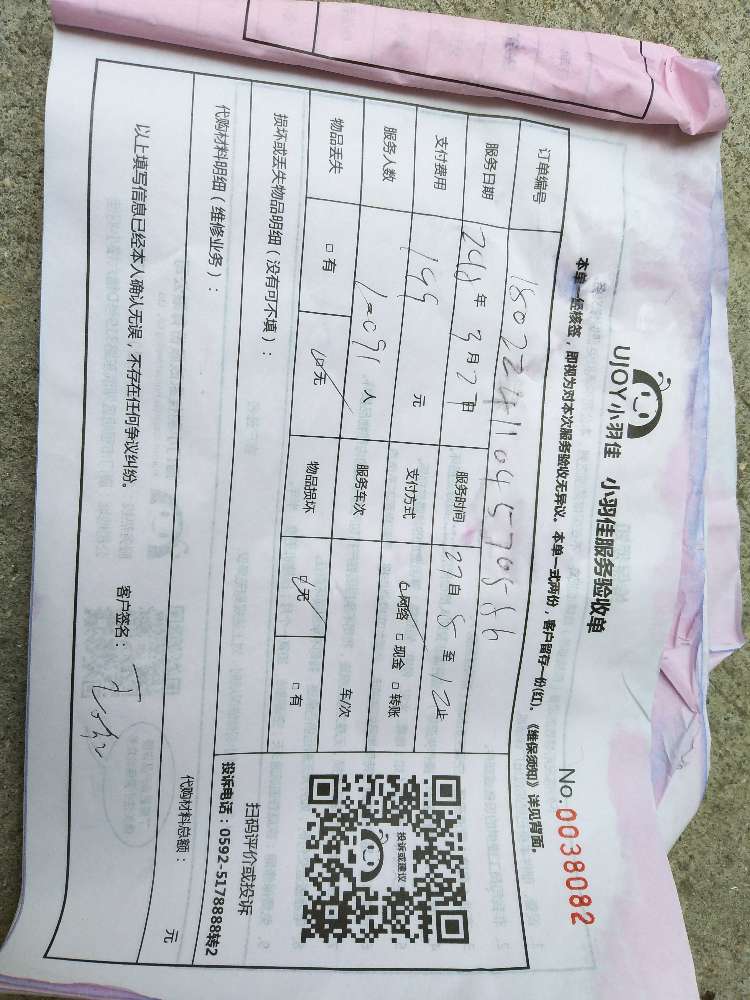 UJOY小羽佳 小羽佳服务验收单
No.0038082
本单一经核签，即视为对本次服务验收无异议。本单一式两份，客户留存一份(红)。《维保须知》详见背面。
订单编号 18022411045705586
服务日期 年 3月27日 服务时间 27日 8 至 12止
支付费用 199 元 支付方式 □网络 □现金 □转账
服务人数 人 服务车次 车/次
物品丢失 □有 □无 物品损坏 □无 □有
损坏或丢失物品明细（没有可不填）：
代购材料明细（维修业务）：
代购材料总额： 元
投诉或建议
扫码评价或投诉
投诉电话：0592-5178888转2
以上填写信息已经本人确认无误，不存在任何争议纠纷。 客户签名：